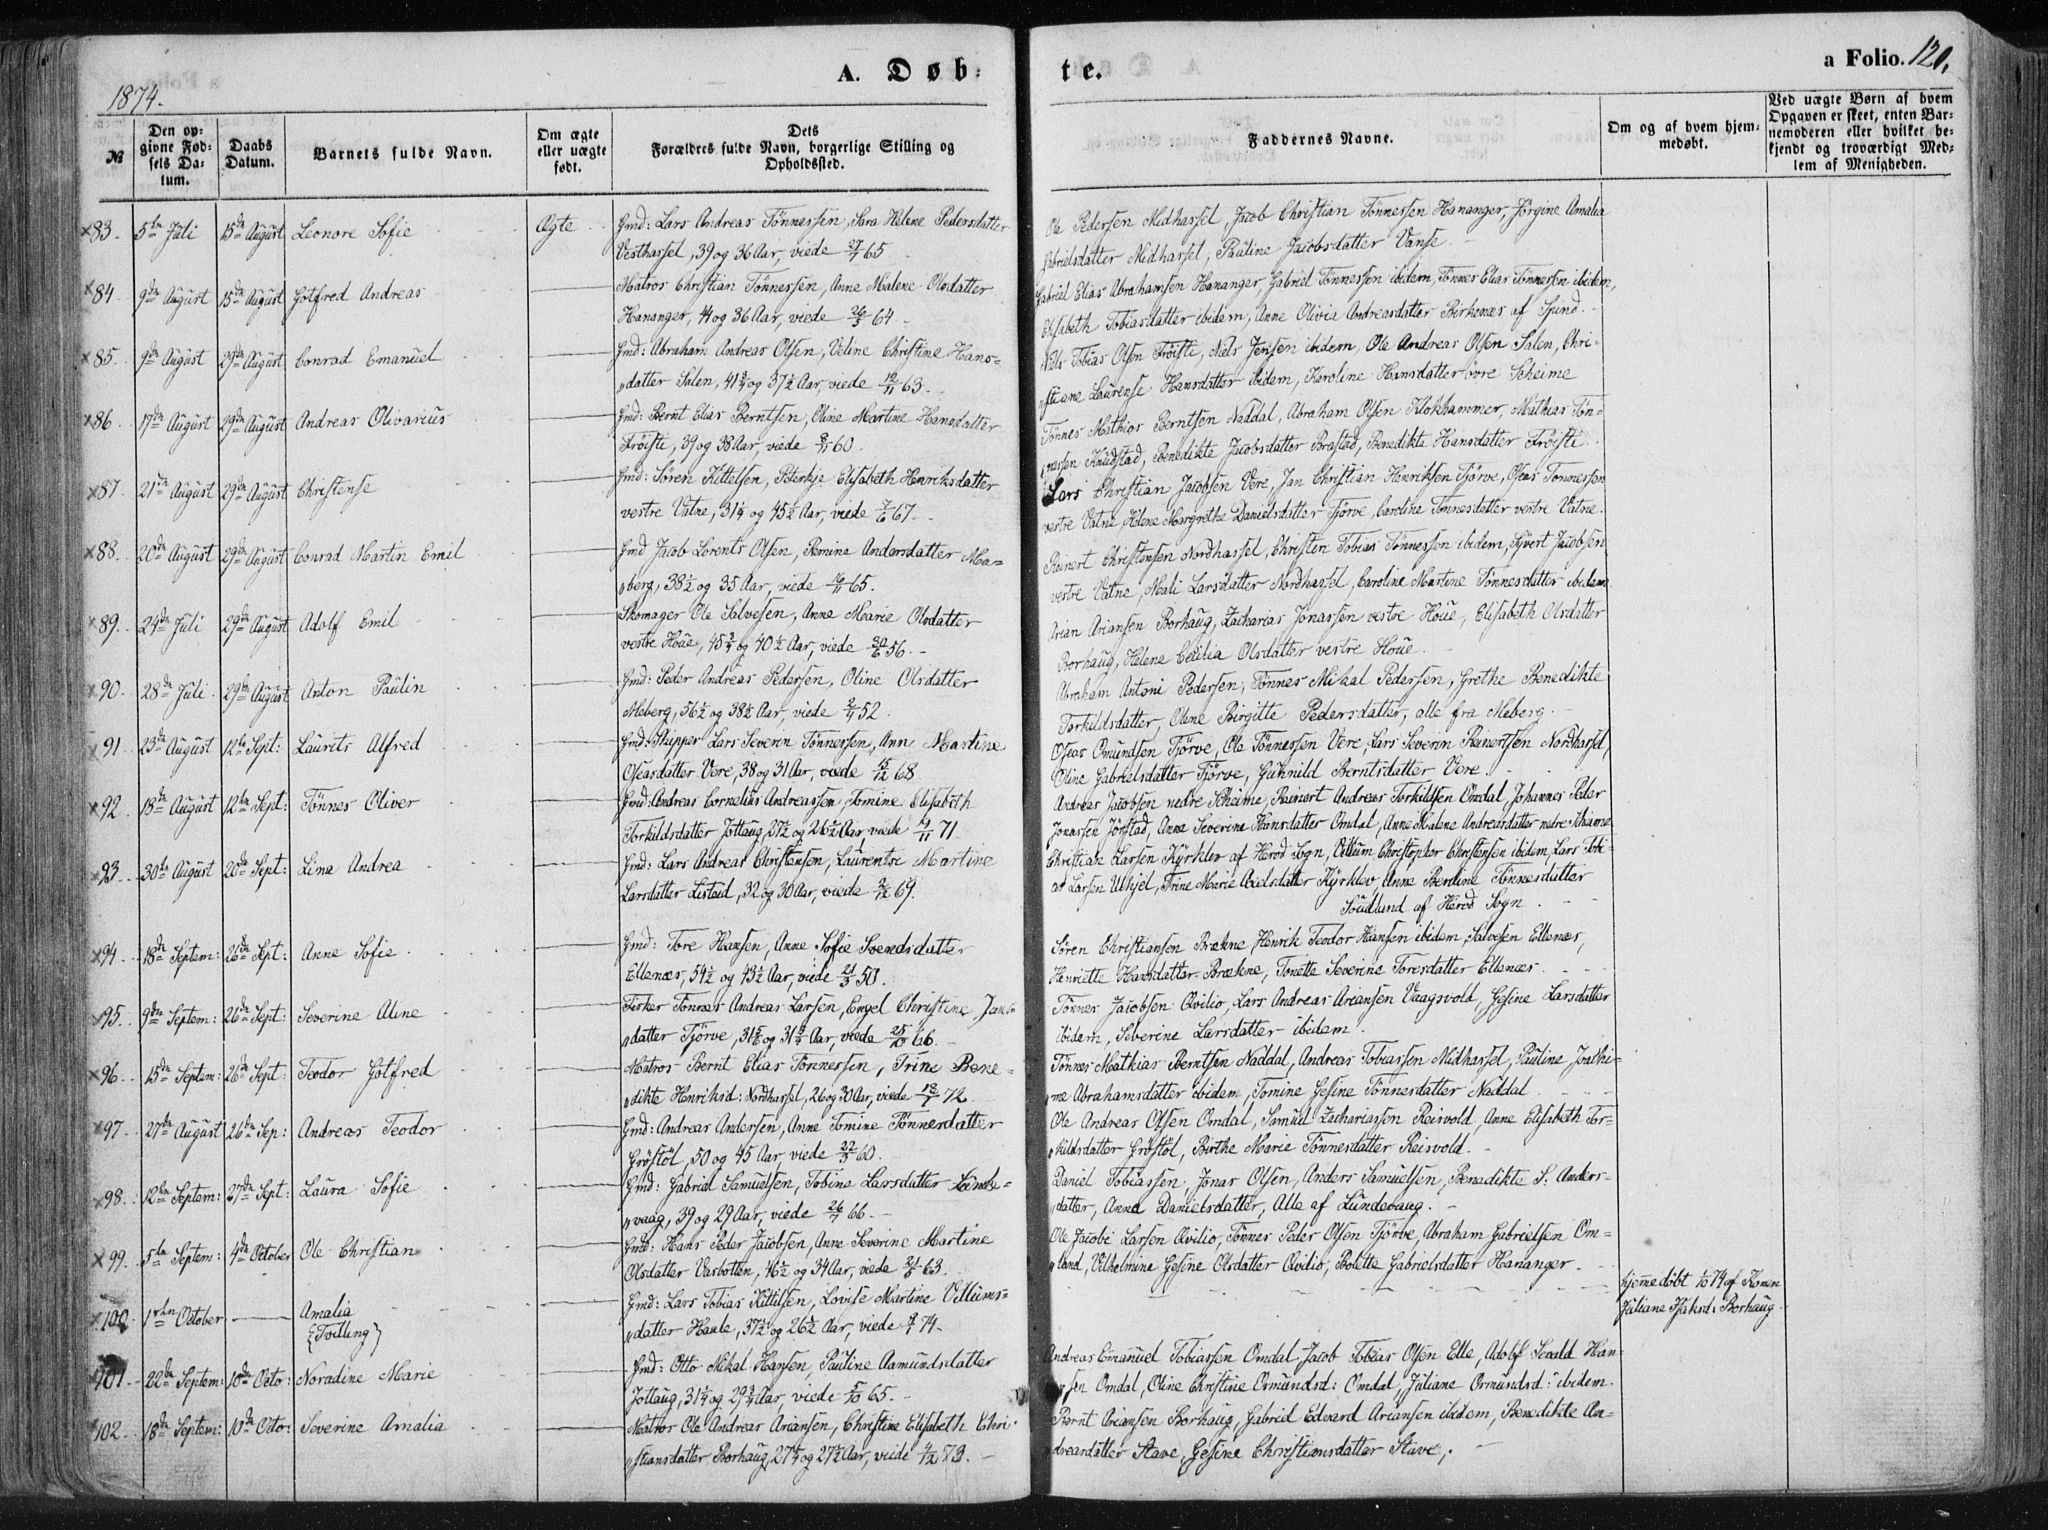 1874.
A. Døb-
te.
a Folio. 120.
№
Den opgivne Fødsels Datum.
Daabs Datum.
Barnets fulde Navn.
Om ægte eller uægte født.
Dets Forældres fulde Navn, borgerlige Stilling og Opholdssted.
Faddernes Navne.
Om og af hvem hjemmedøbt.
Ved uægte Børn af hvem Opgaven er skeet, enten Barnemoderen eller hvilket bekjendt og troværdigt Medlem af Menigheden.
83. 5te Juli 15de August Leonore Sofie Ægte Gmd: Lars Andreas Tönnessen, Sara Helene Pedersdatter
Vesthassel, 39 og 36 Aar, viede 27/7 65
Ole Pedersen Midhassel, Jacob Christian Tönnessen Hananger, Jörgine Amalia
Gabrielsdatter Midhassel, Pauline Jacobsdatter Vanse.
84 9de August 15de August Gotfred Andreas Matros Christian Tönnessen, Anne Malene Olsdatter
Hananger, 44 og 36 Aar, viede 26/5 64
Gabriel Elias Abrahamsen Hananger, Gabriel Tönnessen ibidem, Tönnes Elias Tönnessen ibidem,
Elisabeth Tobiasdatter ibidem, Anne Olivia Andreasdatter Birkenæs af Spind.
85. 9de August 29de August Conrad Emanuel Gmd: Abraham Andreas Olsen, Veline Christine Hans-
datter Salen, 41 3/4 og 37 1/2 Aar, viede 19/11 63.
Niels Tobias Olsen Fröisti, Niels Jensen ibidem, Ole Andreas Olsen Salen, Chri-
stiane Laurense Hansdatter ibidem, Karoline Hansdatter övre Scheime
86. 17de August 29de August Andreas Olivarius Gmd: Bernt Elias Berntsen, Oline Martine Hansdatter
Fröisti, 39 og 38 Aar, viede 8/11 60.
Tönnes Mathias Berntsen Naddal, Abraham Olsen Klokhammer, Mathias Tön-
nessen Knudstad, Benedikte Jacobsdatter Brastad, Benedikte Hansdatter Fröisti
87. 21de August 29de August Christense Gmd: Sören Kittelsen, Peterkje Elisabeth Henriksdatter
vestre Vatne, 31 1/4 og 45 1/2 Aar, viede 7/6 67.
Lars Christian Jacobsen Vere, Jan Christian Henriksen Tjörve, Oseas Tönnessen
vestre Vatne, Helene Margrethe Danielsdatter Tjörve, Caroline Tönnesdatter vestre Vatne.
88. 20de August 29de August Conrad Martin Emil Gmd Jacob Lorents Olsen, Romine Andersdatter Me-
berg, 38 1/2 og 35 Aar, viede 16/11 65.
Reinert Christensen Nordhassel, Christen Tobias Tönnessen ibidem, Syvert Jacobsen
vestre Vatne, Mali Larsdatter Nordhassel, Caroline Martine Tönnesdatter ibidem
89. 24de Juli 29de August Adolf Emil Skomager Ole Salvesen, Anne Marie Olsdatter
vestre Houe, 45 3/4 og 40 1/2 Aar, viede 30/6 56.
Arian Ariansen Borhaug, Zacharias Jonassen vestre Houe, Elisabeth Olsdatter
Borhaug, Helene Cecilia Olsdatter vestre Houe.
90. 28de Juli 29de August Anton Paulin Gmd: Peder Andreas Pedersen, Oline Olsdatter
Meberg, 56 1/2 og 38 1/2 Aar, viede 2/11 52.
Abraham Antoni Pedersen, Tönnes Mikal Pedersen, Grethe Benedikte
Torkildsdatter, Olene Birgitte Pedersdatter, alle fra Meberg.
91 23de August 12te Sept: Laurits Alfred Gmd: Skipper Lars Severin Tönnessen, Ann Martine
Oseasdatter Vere, 38 og 31 Aar, viede 15/12 68
Oseas Omundsen Tjörve, Ole Tönnessen Vere, Lars Severin Reinertsen Nordhassel,
Oline Gabrielsdatter Tjörve, Gunnild Berntsdatter Vere.
92 18de August 12te Sept: Tönnes Oliver Gmd: Andreas Cornelius Andreassen, Tomine Elisabeth
Torkildsdatter Jöttaug, 27 1/2 og 26 1/2 Aar, viede 19/11 71
Andreas Jacobsen nedre Scheime, Reinert Andreas Torkildsen Omdal, Johannes Peder
Jonassen Jörstad, Anne Severine Hansdatter Omdal, Anne Malene Andreasdatter nedre Scheime
93 30te August 20de Sept: Lina Andrea Gmd: Lars Andreas Christensen, Laurentse Martine
Larsdatter Listeid, 32 og 30 Aar, viede 2/12 69.
Christian Larsen Kyrklev af Herod Sogn, Villum Christopher Christensen ibidem, Lars Tobi-
as Larsen Ulhjel, Trine Marie Axelsdatter Kyrklev, Anne Berdine Tönnesdatter
Soudland af Herod Sogn
94 18de Septem: 26de Sept: Anne Sofie Gmd: Tore Hansen, Anne Sofie Svendsdatter
Ellenæs, 54 1/2 og 43 1/2 Aar, viede 21/3 50.
Sören Christiansen Brækne, Henrik Teodor Hansen ibidem, Salvesen Ellenæs,
Henriette Hansdatter Brækne, Tonette Severine Toresdatter Ellenæs
95. 9de Septem: 26de Sept: Severine Aline Fisker Tönnes Andreas Larsen, Engel Christine Jans-
datter Tjörve, 31 5/6 og 31 3/4 Aar, viede 25/10 66.
Tönnes Jacobsen Qvilio, Lars Andreas Ariansen Vaagsvold, Gesine Larsdatter
ibidem, Severine Larsdatter ibidem.
96 15de Septem: 26de Sept: Teodor Gotfred Matros Bernt Elias Tönnessen, Trine Bene-
dikte Henriksd: Nordhassel, 26 og 30 Aar, viede 18/7 72
Tönnes Mathias Berntsen Naddal, Andreas Tobiassen Midhassel, Pauline Joachi-
me Abrahamsdatter ibidem, Tomine Gesine Tönnesdatter Naddal
97 27de August 26de Sep: Andreas Teodor Gmd: Andreas Andersen, Anne Tomine Tönnesdatter
Gröstöl, 50 og 45 Aar, viede 22/3 60.
Ole Andreas Olsen Omdal, Samuel Zachariassen Reisvold, Anne Elisabeth Tor-
kildsdatter Gröstöl, Birthe Marie Tönnesdatter Reisvold.
98. 12te Septem: 27de Sept: Laura Sofie Gmd: Gabriel Samuelsen, Tobine Larsdatter Lunde-
vaag, 39 og 29 Aar, viede 26/7 66.
Daniel Tobiassen, Jonas Olsen, Anders Samuelsen, Benedikte S. Anders-
datter, Anna Danielsdatter, Alle af Lundevaag.
99. 5te Septem: 4de October Ole Christian Gmd: Hans Peder Jacobsen, Anne Severine Martine
Olsdatter Vasbotten, 46 1/2 og 34 Aar, viede 2/5 63.
Ole Jacobi Larsen Qvilio, Tönnes Peder Olsen Tjörve, Abraham Gabrielsen Ome-
land, Vilhelmine Gesine Olsdatter Qvilio, Bolette Gabrielsdatter Hananger.
100 1ste October Amalia
{Tvilling}
Gmd: Lars Tobias Kittilsen, Lovise Martine Villums-
datter Haale, 37 1/2 og 26 1/2 Aar, viede 9/1 74.
hjemmedöbt 1/10 74 af Konen
Juliane Isaksd: Borhaug
101 22de Septem: 10de Octo: Noradine Marie Gmd: Otto Mikal Hansen, Pauline Aamundsdatter
Jöttaug, 31 1/4 og 29 3/4 Aar, viede 5/10 65.
Andreas Emanuel Tobiassen Omdal, Jacob Tobias Olsen Elle, Adolf Sevald Han-
sen Omdal, Oline Christine Ormundsd: Omdal, Juliane Ormundsd: ibidem.
102. 18de Septem: 10de Octo: Severine Amalia Matros Ole Andreas Ariansen, Christine Elisabeth Chri-
stiansdatter Borhaug, 27 1/4 og 27 1/2 Aar, viede 4/12 73.
Bernt Ariansen Borhaug, Gabriel Edvard Ariansen ibidem, Benedikte An-
dreasdatter Stave, Gesine Christiansdatter Stave.